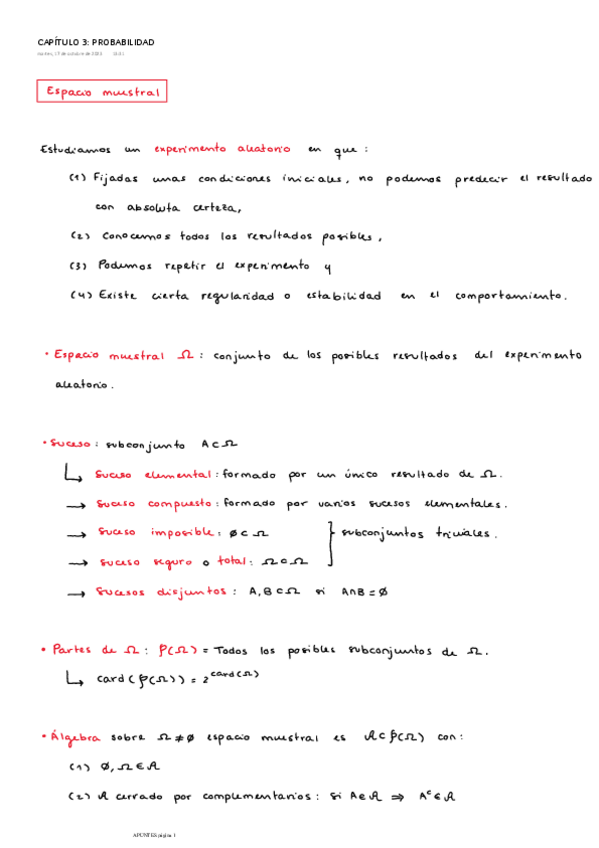 CAPÍTULO 3: PROBABILIDAD
Espacio muestral
Estudiamos un experimento aleatorio en que:
(1) Fijadas unas condiciones iniciales, no podemos predecir el resultado
con absoluta certeza,
(2) Conocemos todos los resultados posibles,
(3) Podemos repetir el experimento y
(4) Existe cierta regularidad o estabilidad en el comportamiento.
• Espacio muestral Ω: conjunto de los posibles resultados del experimento
aleatorio.
• Suceso: subconjunto A⊂Ω
↳ Suceso elemental: formado por un único resultado de Ω.
→ Suceso compuesto: formado por varios sucesos elementales.
→ Suceso imposible: ∅⊂Ω } subconjuntos triviales.
→ Suceso seguro o total: Ω⊂Ω
→ Sucesos disjuntos: A,B⊂Ω si A∩B=∅
• Partes de Ω: P(Ω) = Todos los posibles subconjuntos de Ω.
↳ card(P(Ω)) = 2^card(Ω)
• Álgebra sobre Ω≠∅ espacio muestral es A⊂P(Ω) con:
(1) ∅,Ω∈A
(2) A cerrado por complementarios: si A∈A ⇒ Aᶜ∈A
APUNTES página 1